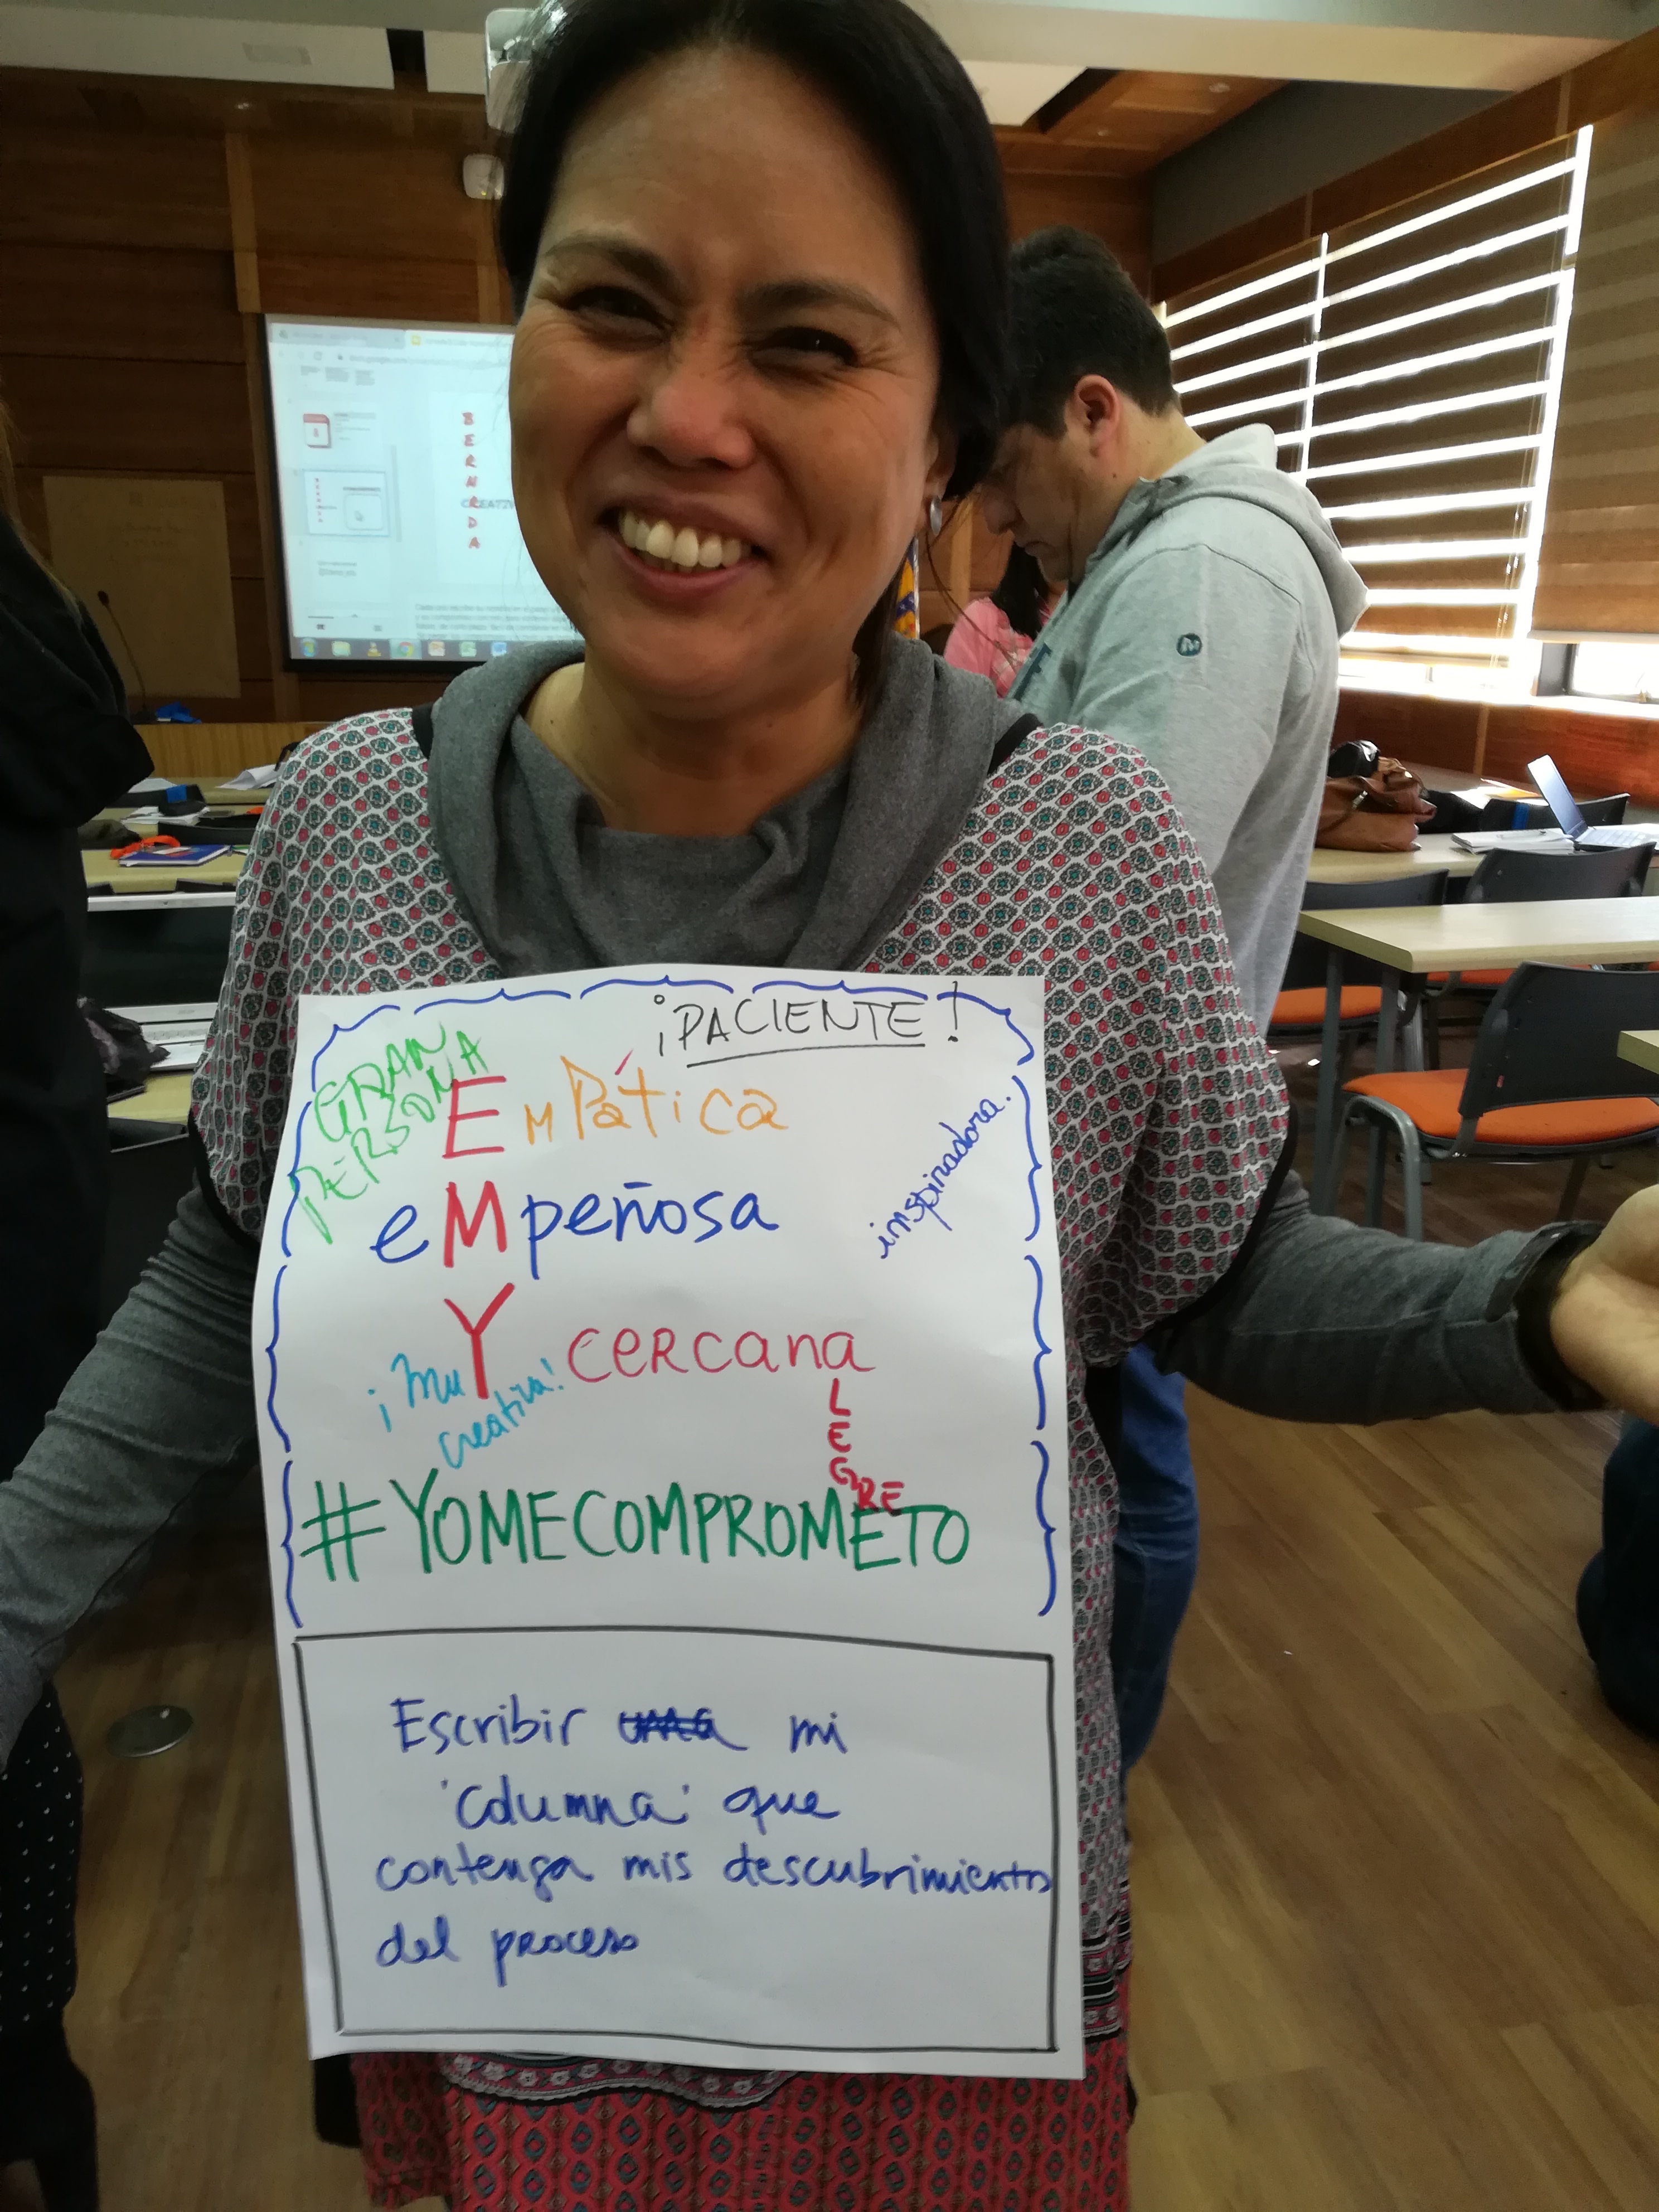 BERNARDA
CREATIV
¡PACIENTE!
GRAN
PERSONA
EMPática
inspiradora.
eMpeñosa
¡muY cercana
creativa!
LEGRE
#YOMECOMPROMETO
Escribir mi
"Columna" que
contenga mis descubrimientos
del proceso
M